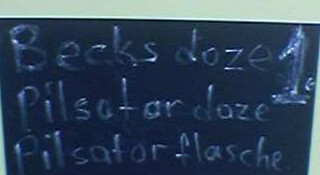 Becks doze 1.
Pilsator doze
Pilsator flasche